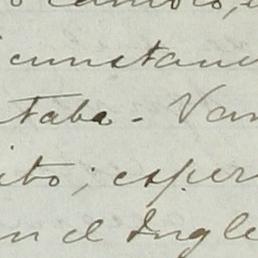 o cambio, e
cunstanc
taba. - Van
ito; esper
n el Ingle